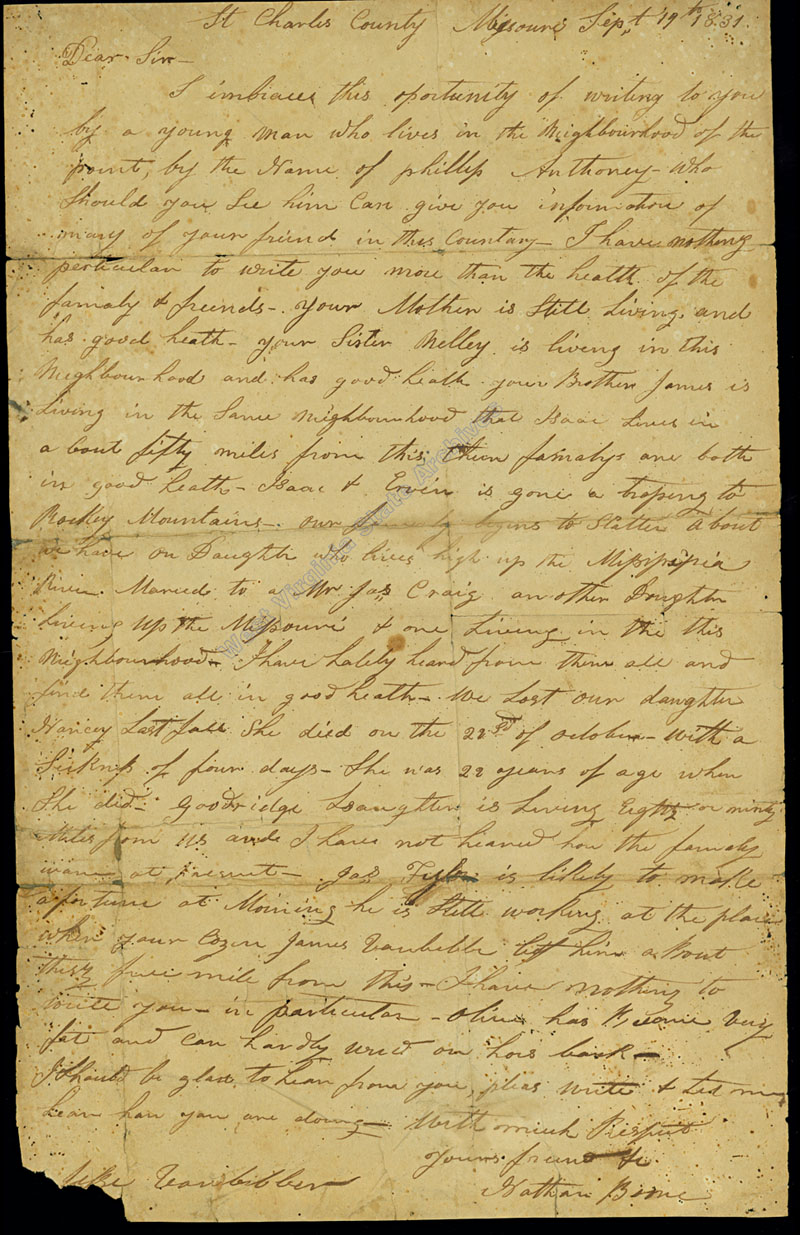 St Charles County Missouri Sept 19th 1831
Dear Sir-
I imbraces this oportunity of writing to you
by a young man who lives in the Neighbourhood of the
point, by the Name of phillip Anthoney- who
Should you See him Can give you information of
many of your friend in this Countary- I have nothing
perticular to write you more than the health of the
famaly & freends- your Mother is Still Living and
has good heath- your Sister Nelley is liveng in this
Neighbourhood and has good heath your Brother James is
Living in the Same neighbourhood that Isaac Lives in
a bout fifty miles from this, their famalys are both
in good heath- Isaac & Ervin is gone a traping to
Rockey Mountains- our begins to Scatter About
we have on Daughter who lives high up the Missippia
River Maried to a Mr Jas Craig an other Daughter
living up the Missouri & one Living in the this
Neighbourhood- I have lately heard from them all and
find them all in good heath- We Lost our daughter
Nancey Last fall She died on the 22nd of october- with a
Sickness of four days- She was 22 years of age when
She did- Goodridge Daughter is Living Eight or ninty
Miles from us and I have not heared how the famaly
ware at present- Jas is likely to make
a fortune at Moining he is Still working at the place
when your Cozen James Vanbibber left him about
thirty five mile from this- I have nothing to
write you- in particular- olive has Become very
fat and Can hardly on hors back-
I Should be glad to hear from you, pleas write & Let me
hear how you are doing- With much Respect
yours freend &c
Nathan Boone
Vanbibber
West Virginia State Archives